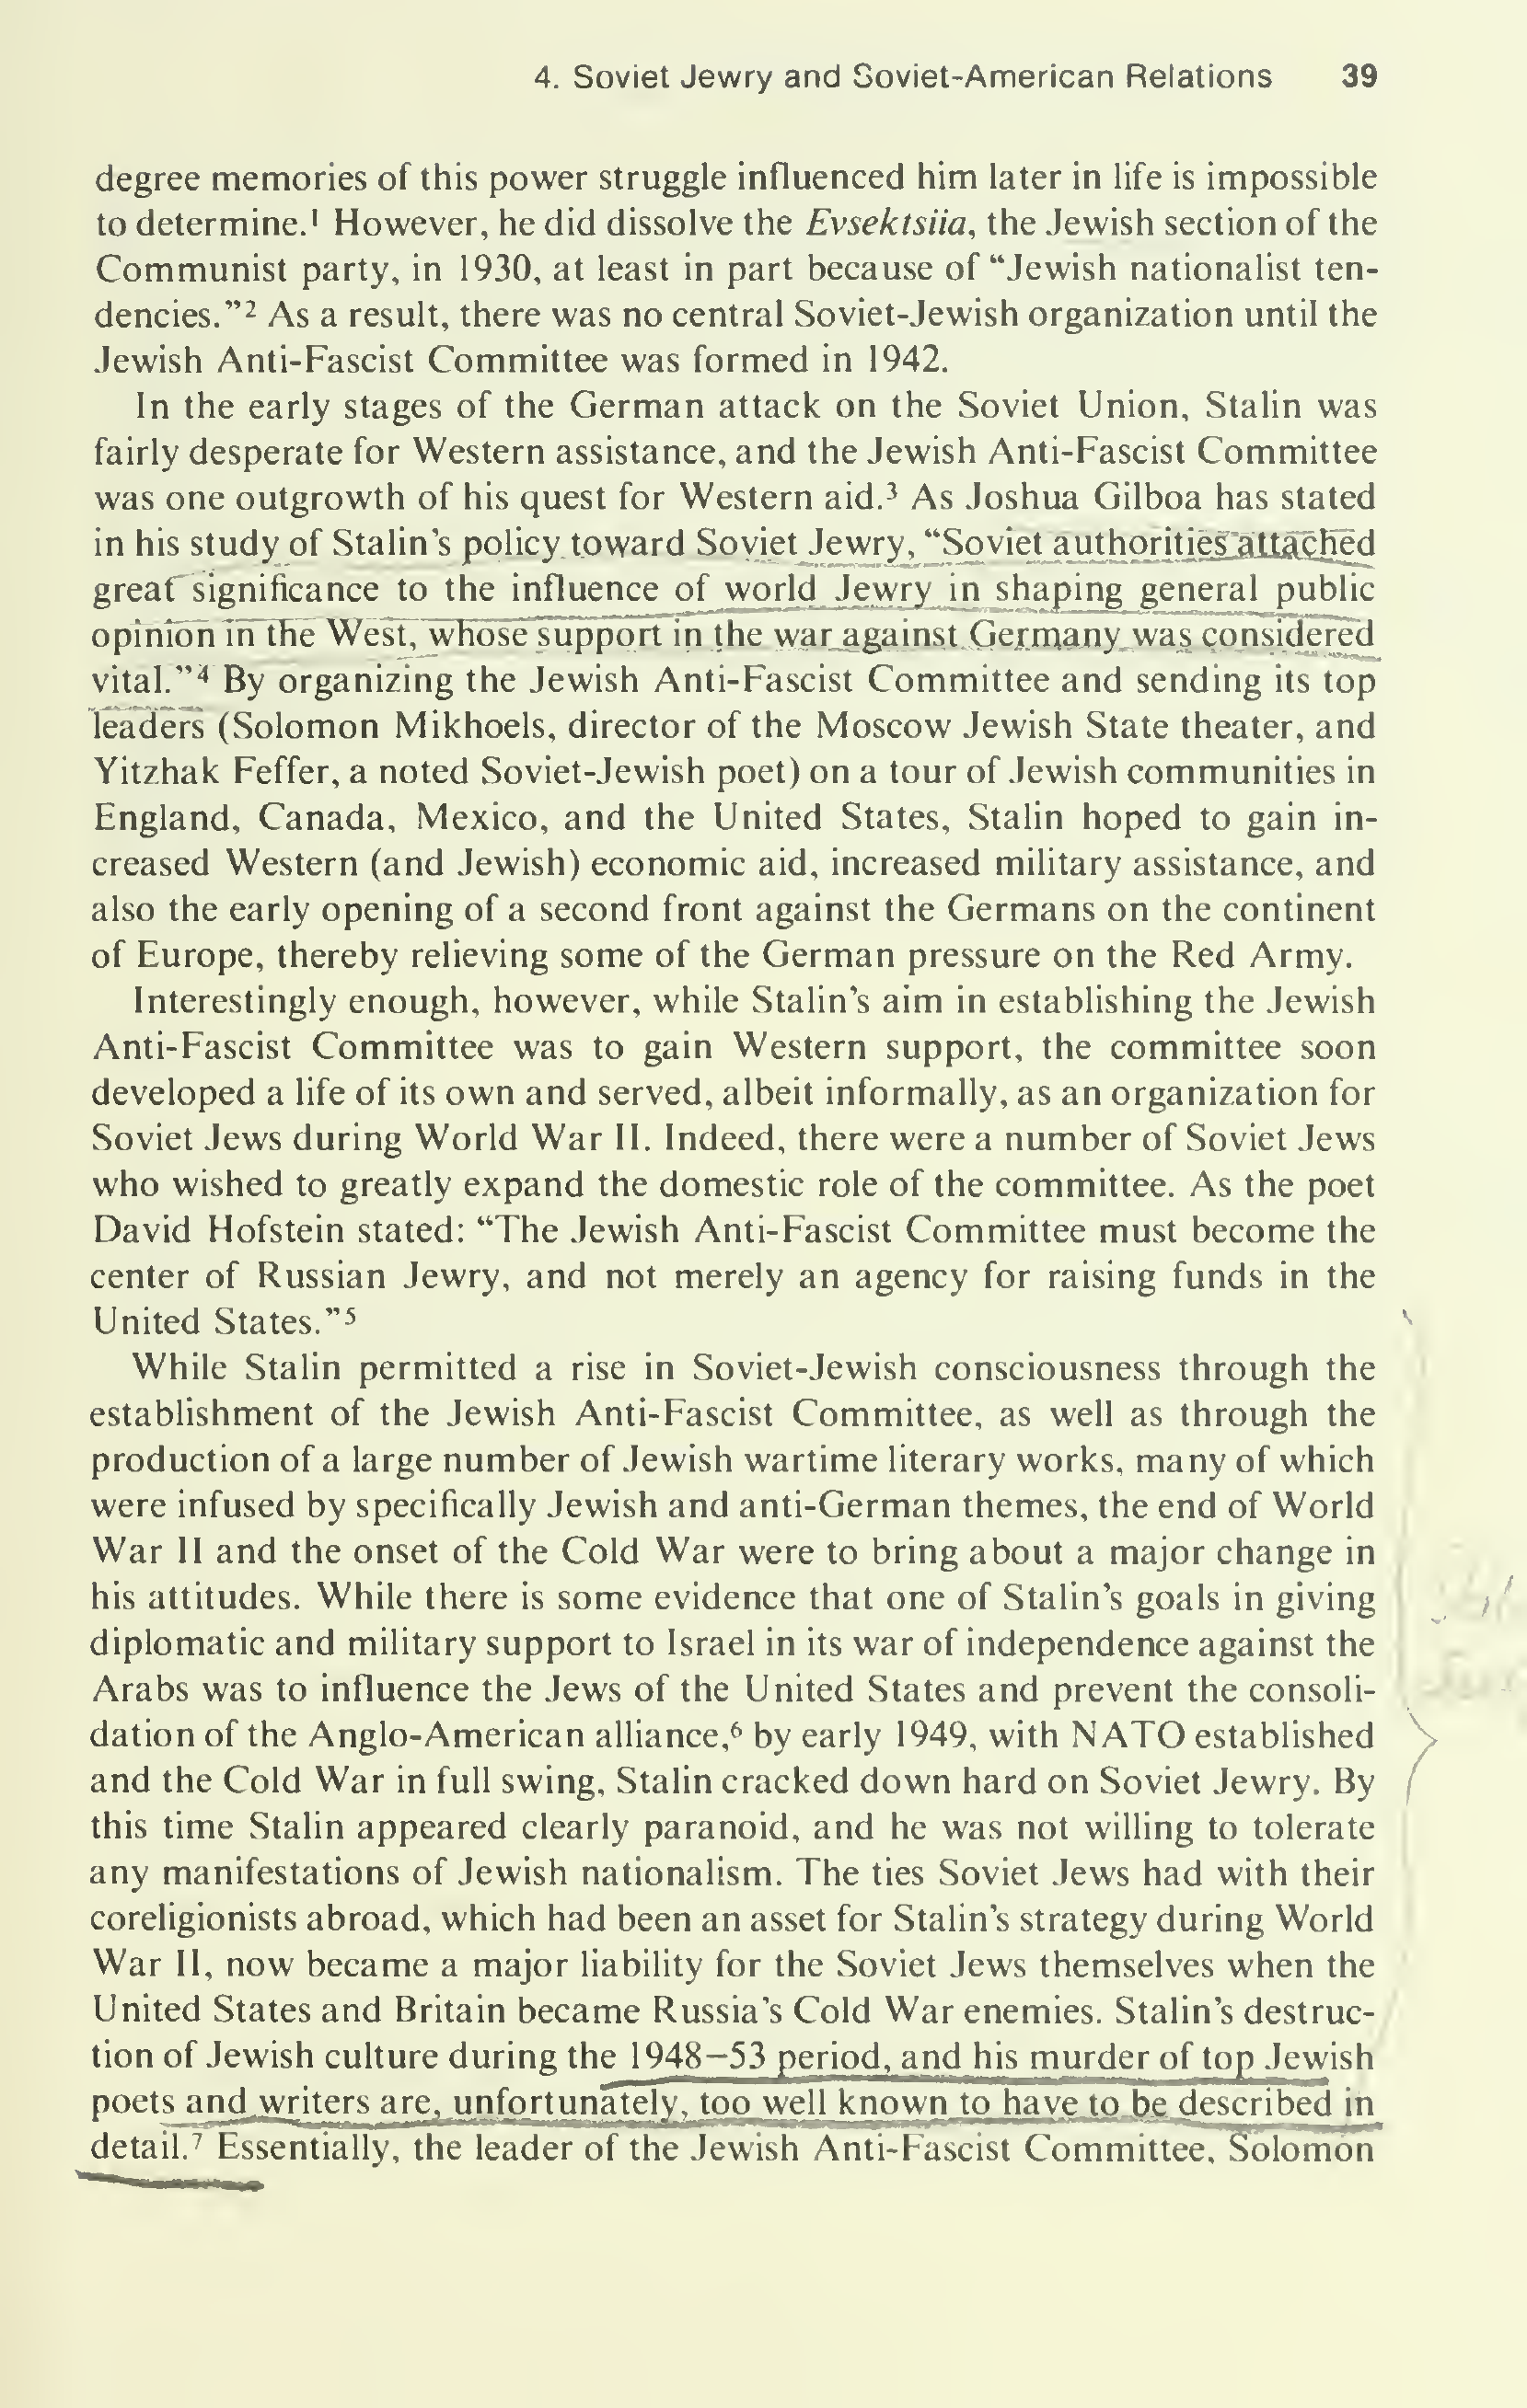 4. Soviet Jewry and Soviet-American Relations 39
degree memories of this power struggle influenced him later in life is impossible
to determine.¹ However, he did dissolve the Evsektsiia, the Jewish section of the
Communist party, in 1930, at least in part because of “Jewish nationalist ten-
dencies.”² As a result, there was no central Soviet-Jewish organization until the
Jewish Anti-Fascist Committee was formed in 1942.
In the early stages of the German attack on the Soviet Union, Stalin was
fairly desperate for Western assistance, and the Jewish Anti-Fascist Committee
was one outgrowth of his quest for Western aid.³ As Joshua Gilboa has stated
in his study of Stalin’s policy toward Soviet Jewry, “Soviet authorities attached
great significance to the influence of world Jewry in shaping general public
opinion in the West, whose support in the war against Germany was considered
vital.”⁴ By organizing the Jewish Anti-Fascist Committee and sending its top
leaders (Solomon Mikhoels, director of the Moscow Jewish State theater, and
Yitzhak Feffer, a noted Soviet-Jewish poet) on a tour of Jewish communities in
England, Canada, Mexico, and the United States, Stalin hoped to gain in-
creased Western (and Jewish) economic aid, increased military assistance, and
also the early opening of a second front against the Germans on the continent
of Europe, thereby relieving some of the German pressure on the Red Army.
Interestingly enough, however, while Stalin’s aim in establishing the Jewish
Anti-Fascist Committee was to gain Western support, the committee soon
developed a life of its own and served, albeit informally, as an organization for
Soviet Jews during World War II. Indeed, there were a number of Soviet Jews
who wished to greatly expand the domestic role of the committee. As the poet
David Hofstein stated: “The Jewish Anti-Fascist Committee must become the
center of Russian Jewry, and not merely an agency for raising funds in the
United States.”⁵
While Stalin permitted a rise in Soviet-Jewish consciousness through the
establishment of the Jewish Anti-Fascist Committee, as well as through the
production of a large number of Jewish wartime literary works, many of which
were infused by specifically Jewish and anti-German themes, the end of World
War II and the onset of the Cold War were to bring about a major change in
his attitudes. While there is some evidence that one of Stalin’s goals in giving
diplomatic and military support to Israel in its war of independence against the
Arabs was to influence the Jews of the United States and prevent the consoli-
dation of the Anglo-American alliance,⁶ by early 1949, with NATO established
and the Cold War in full swing, Stalin cracked down hard on Soviet Jewry. By
this time Stalin appeared clearly paranoid, and he was not willing to tolerate
any manifestations of Jewish nationalism. The ties Soviet Jews had with their
coreligionists abroad, which had been an asset for Stalin’s strategy during World
War II, now became a major liability for the Soviet Jews themselves when the
United States and Britain became Russia’s Cold War enemies. Stalin’s destruc-
tion of Jewish culture during the 1948–53 period, and his murder of top Jewish
poets and writers are, unfortunately, too well known to have to be described in
detail.⁷ Essentially, the leader of the Jewish Anti-Fascist Committee, Solomon